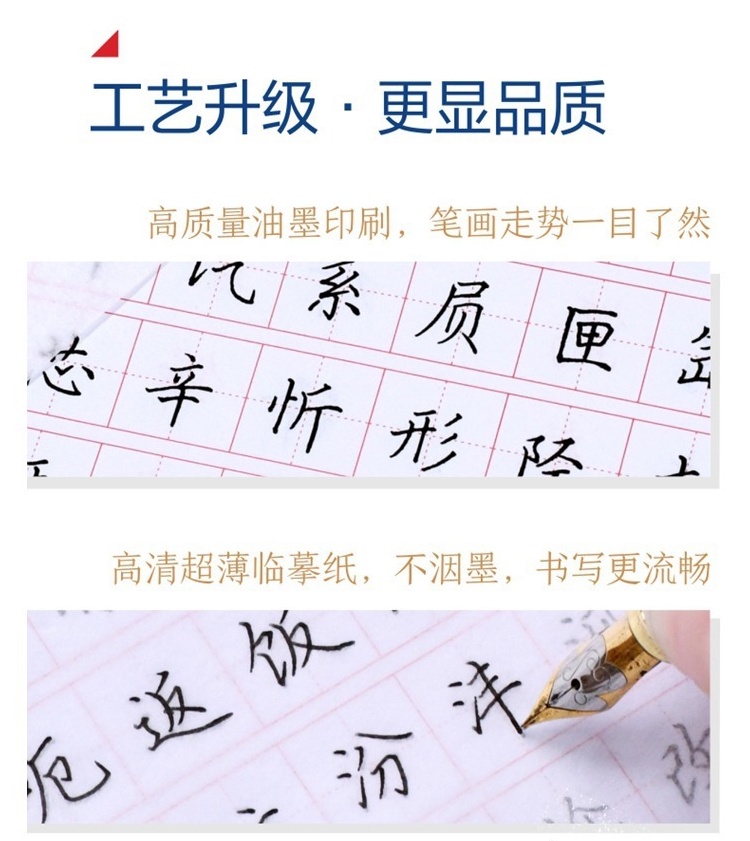 工艺升级·更显品质
高质量油墨印刷，笔画走势一目了然
系 质 匣
芯 辛 忻 形
高清超薄临摹纸，不洇墨，书写更流畅
返 饭
厄 汾 沣